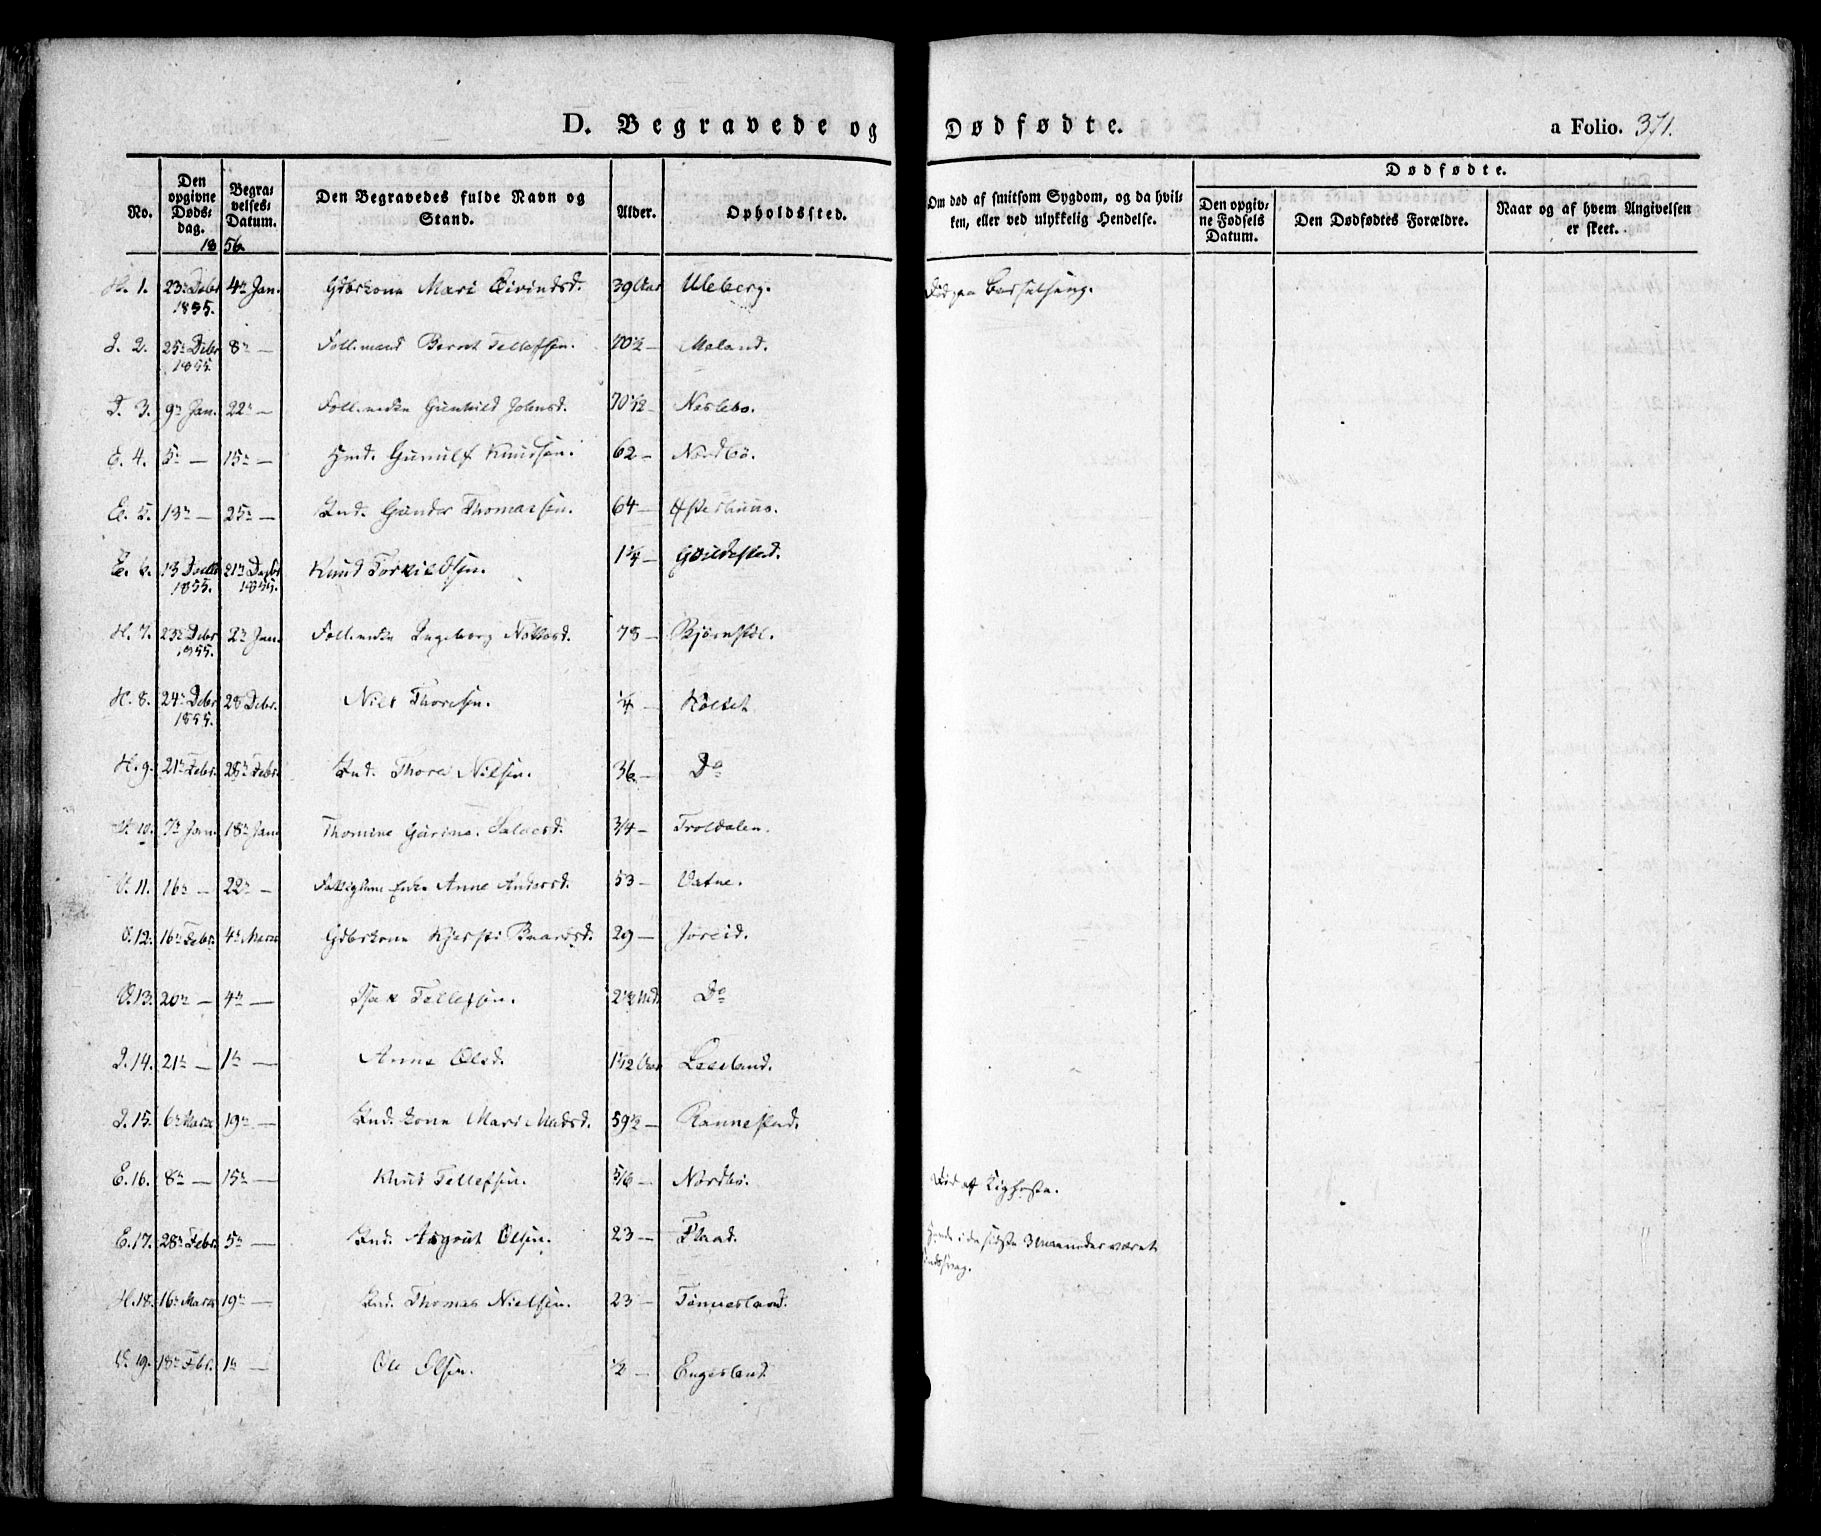 D. Begravede og Dødfødte. a Folio. 371.
No. | Den opgivne Døds-dag. | Begra-velses-Datum. | Den Begravedes fulde Navn og Stand. | Alder. | Opholdssted. | Om død af smitsom Sygdom, og da hvil-ken, eller ved ulykkelig Hendelse. | Dødfødte.
Den opgiv-ne Fødsels Datum. | Den Dødfødtes Forældre. | Naar og af hvem Angivelsen er skeet.
1856.
H. 1. 23de Debr 1855. 4de Jan. Gdbrkone Mari Eivindsd. 39 Aar Uleberg. Død paa Barselseng.
2. 25de Debr 1855. 8de — Follmand Bernt Tellefsen. 70½ — Moland.
3. 9de Jan. 22de — Follenken Gunhild Johnsd. — Neslebo.
E. 4. 5te — 15de — Gunulf Knudsen. 62 — Nordbö.
E. 5. 13de — 25de — Gunder Thomassen. 64 —
E. 6. 13 Decbr 1855. 21de Decbr 1855. Knud Torkildsen. 1¼ —
H. 7. 23de Debr 1855. 2de Jan. Follenken Ingeborg 78 — Bjørnstöl.
H. 8. 24de Debr 1855. 28 Debr. Niels Thoresen. ¼ — Kölset
H. 9. 21de Debr. 28de Debr. Ind. Thore Nielsen. 36 — Do
10. 7de Jan. 18de Jan. Thomine Gurine 3/4 — Troldalen.
V. 11. 16de — 22de — Enke Anne Andersd. 53 — Vatne.
V. 12. 16de Febr. 4de Marts Gdbrkone Kjersti Baardsd. 29 — Joreid.
V. 13. 20de — 4de — Isak Tellefsen. Do
14. 21de — 1te — Anne Olsd. Aar
15. 6te Marts 19de — Ind. kone Mari Madsd. 59½ — Rannestad.
E. 16. 8de — 15de — Knud Tellefsen. 5/6 — Nordbö. Död af Kighoste.
E. 17. 28de Febr. 5te — Ind. Asgrut Olsen. 23 — Flaad. Havde i de sidste 3 Maaneder været sindssvag.
H. 18. 16de Marts 19de — Ind. Thomas Nielsen. 23 — Tønnesland.
V. 19. 18de Febr. 1te — Ole Olsen. ½ — Engesland.